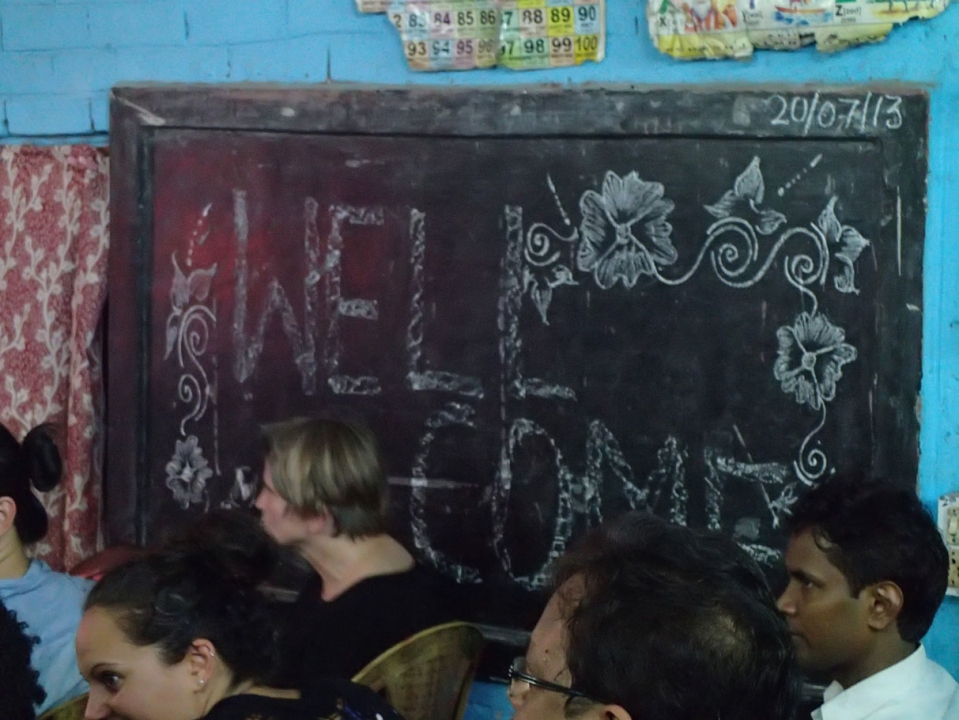 83 84 85 86 87 88 89 90
93 94 95 96 97 98 99 100
Z
20/07/13
WELL
COME